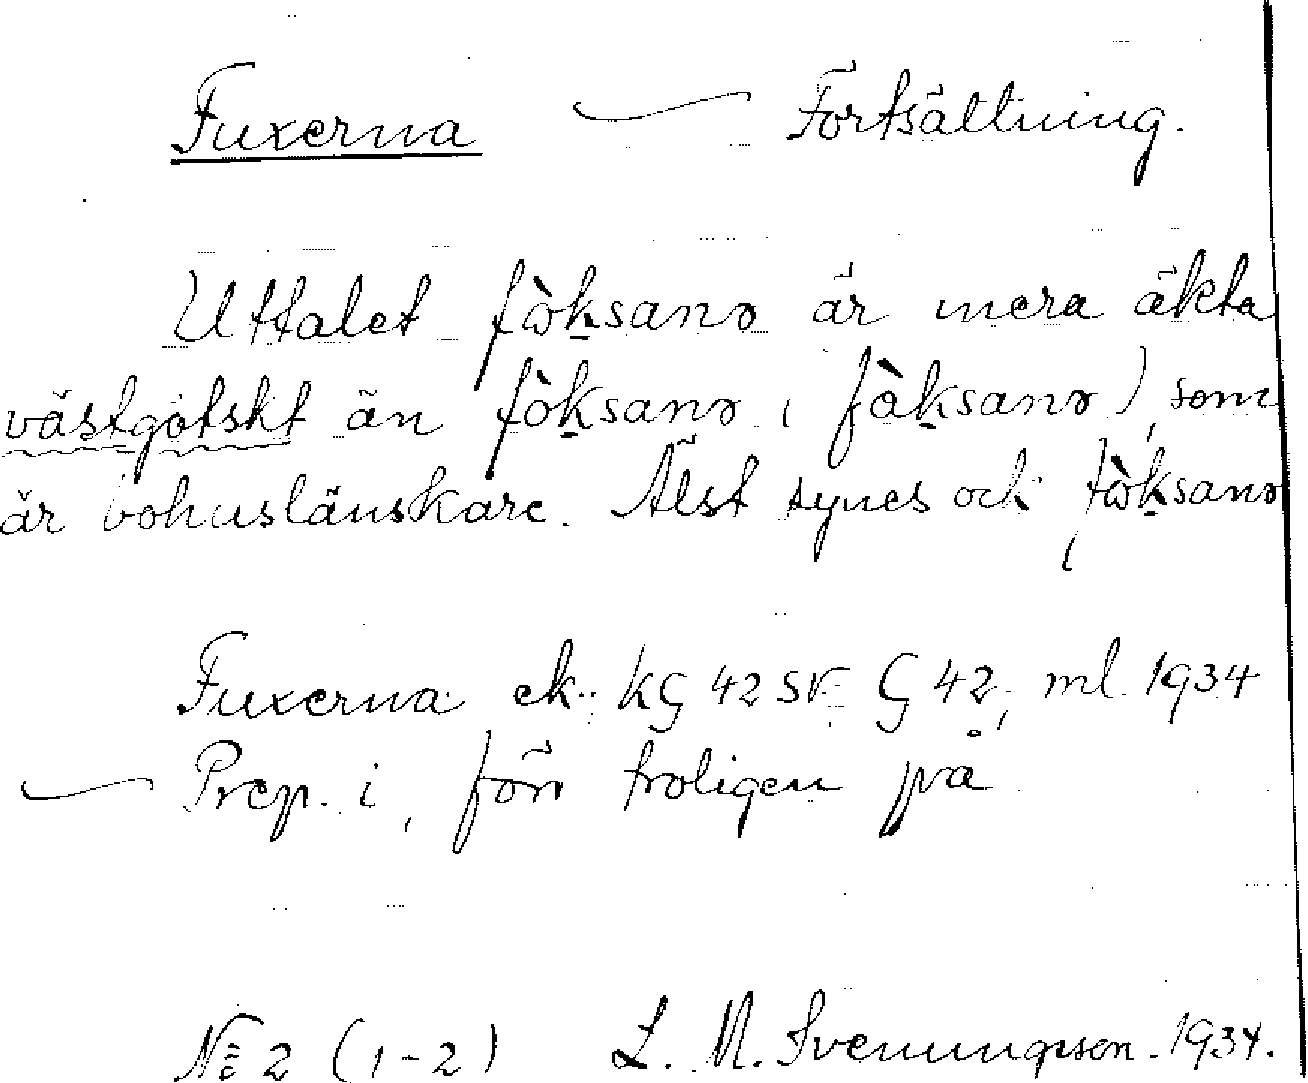 Fuxerna — Fortsättning.
Uttalet fὼk̲sanɤ är mera äkta
västgötskt än fòk̲sanɤ (fàk̲sanɤ), som
är bohuslänskare. Älst synes ock fὼk̲sanɤ
Fuxerna ek. KG 42 SV G 42, ml. 1934
— Prep. i, förr troligen på
No 2 (1-2) L. M. Svenungsson. 1934.